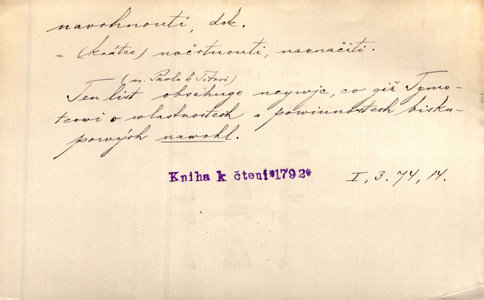 navrhnouti, dok.
= (krátce) načrtnouti, naznačiti.
(sv. Pavla k Titovi)
Ten list obsahuge neywjc, co giž Tymo-
teowi o wlastnostech a powinnostech bisku-
powých nawrhl.
Kniha k čtení*1792* I, 3. 74, 14.